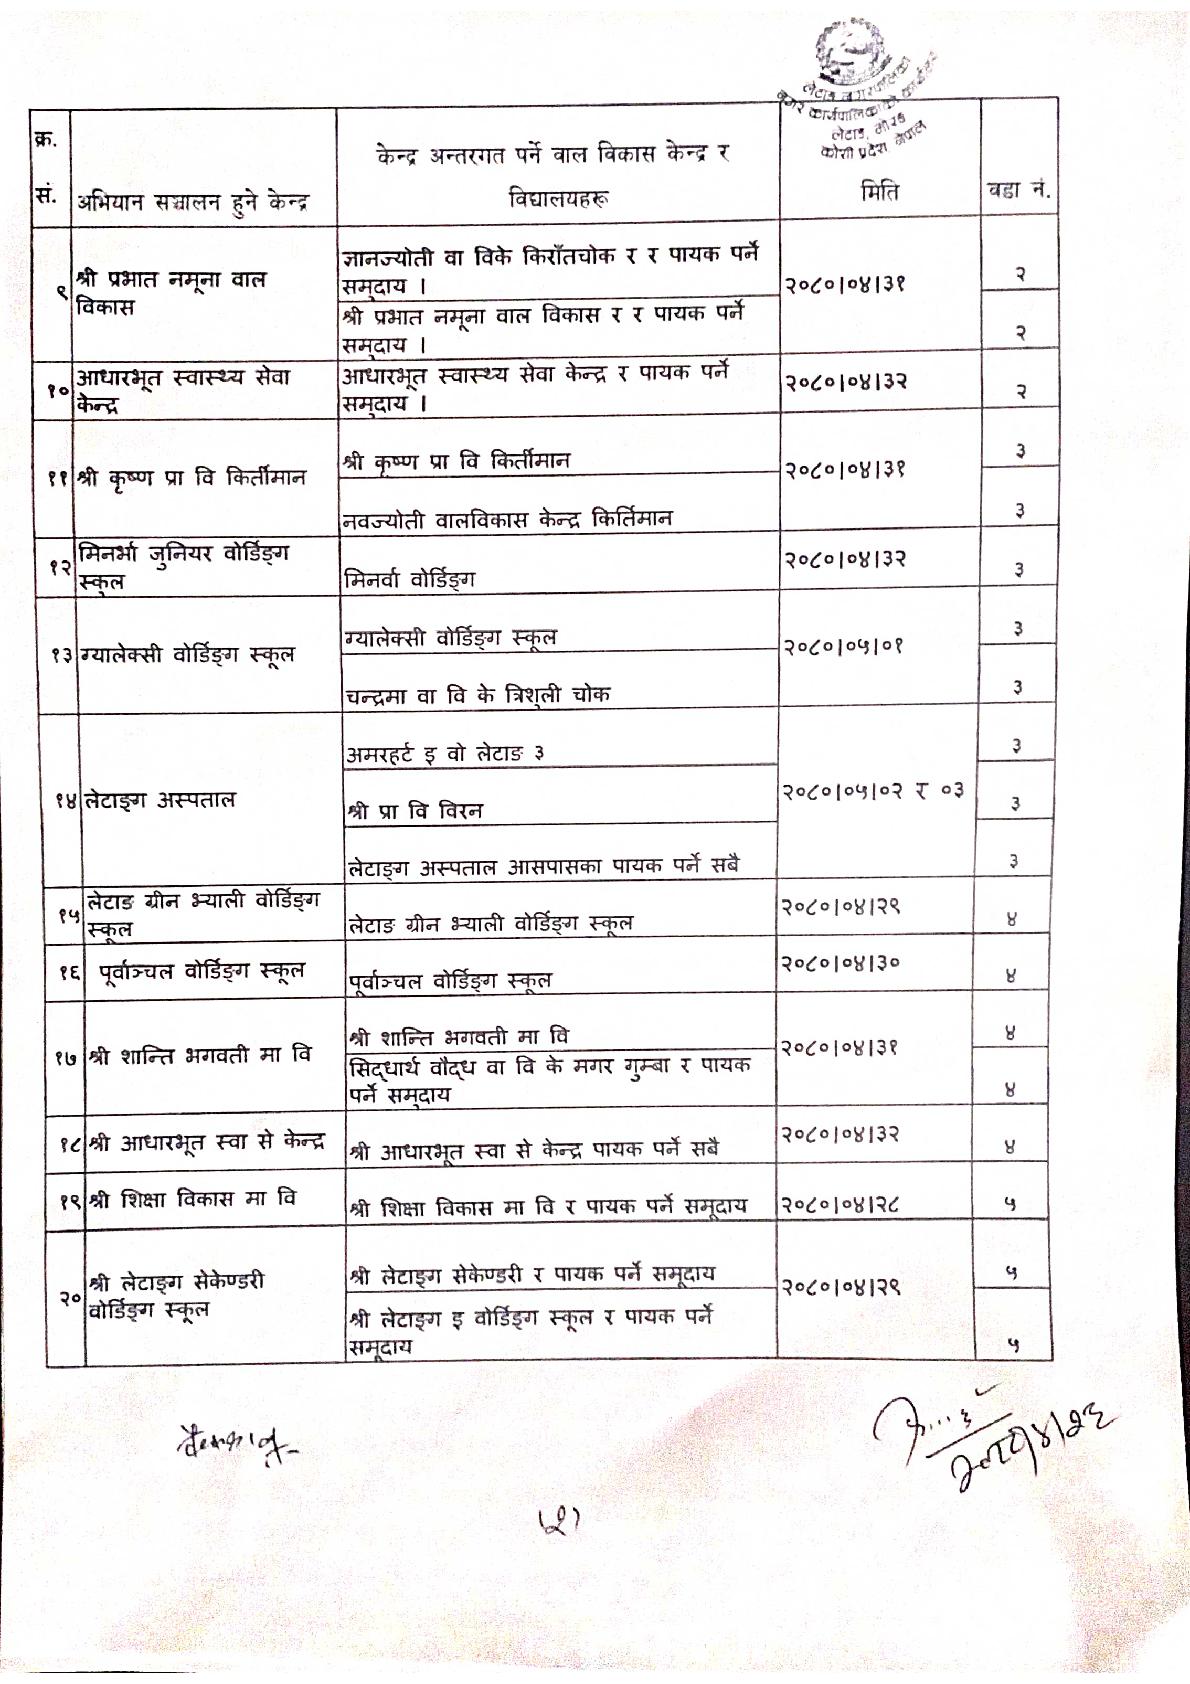 लेटाङ नगरपालिका
नगर कार्यपालिकाको कार्यालय
लेटाङ, मोरङ
कोशी प्रदेश, नेपाल
क्र.
सं.
अभियान सञ्चालन हुने केन्द्र
केन्द्र अन्तरगत पर्ने वाल विकास केन्द्र र
विद्यालयहरू
मिति
वडा नं.
९
श्री प्रभात नमूना वाल
विकास
ज्ञानज्योती वा विके किराँतचोक र र पायक पर्ने
समुदाय ।
२०८०|०४|३१
२
श्री प्रभात नमूना वाल विकास र र पायक पर्ने
समुदाय ।
२
१०
आधारभूत स्वास्थ्य सेवा
केन्द्र
आधारभूत स्वास्थ्य सेवा केन्द्र र पायक पर्ने
समुदाय ।
२०८०|०४|३२
२
११
श्री कृष्ण प्रा वि किर्तीमान
श्री कृष्ण प्रा वि किर्तीमान
२०८०|०४|३१
३
नवज्योती वालविकास केन्द्र किर्तिमान
३
१२
मिनर्भा जुनियर वोर्डिङ्ग
स्कुल
मिनर्वा वोर्डिङ्ग
२०८०|०४|३२
३
१३
ग्यालेक्सी वोर्डिङ्ग स्कूल
ग्यालेक्सी वोर्डिङ्ग स्कूल
२०८०|०५|०१
३
चन्द्रमा वा वि के त्रिशुली चोक
३
१४
लेटाङ्ग अस्पताल
अमरहर्ट इ वो लेटाङ ३
२०८०|०५|०२ र ०३
३
श्री प्रा वि विरन
३
लेटाङ्ग अस्पताल आसपासका पायक पर्ने सबै
३
१५
लेटाङ ग्रीन भ्याली वोर्डिङ्ग
स्कूल
लेटाङ ग्रीन भ्याली वोर्डिङ्ग स्कूल
२०८०|०४|२९
४
१६
पूर्वाञ्चल वोर्डिङ्ग स्कूल
पूर्वाञ्चल वोर्डिङ्ग स्कूल
२०८०|०४|३०
४
१७
श्री शान्ति भगवती मा वि
श्री शान्ति भगवती मा वि
२०८०|०४|३१
४
सिद्धार्थ वौद्ध वा वि के मगर गुम्बा र पायक
पर्ने समुदाय
४
१८
श्री आधारभूत स्वा से केन्द्र
श्री आधारभूत स्वा से केन्द्र पायक पर्ने सबै
२०८०|०४|३२
४
१९
श्री शिक्षा विकास मा वि
श्री शिक्षा विकास मा वि र पायक पर्ने समूदाय
२०८०|०४|२८
५
२०
श्री लेटाङ्ग सेकेण्डरी
वोर्डिङ्ग स्कूल
श्री लेटाङ्ग सेकेण्डरी र पायक पर्ने समूदाय
२०८०|०४|२९
५
श्री लेटाङ्ग इ वोर्डिङ्ग स्कूल र पायक पर्ने
समूदाय
५
२०८०|४|२६